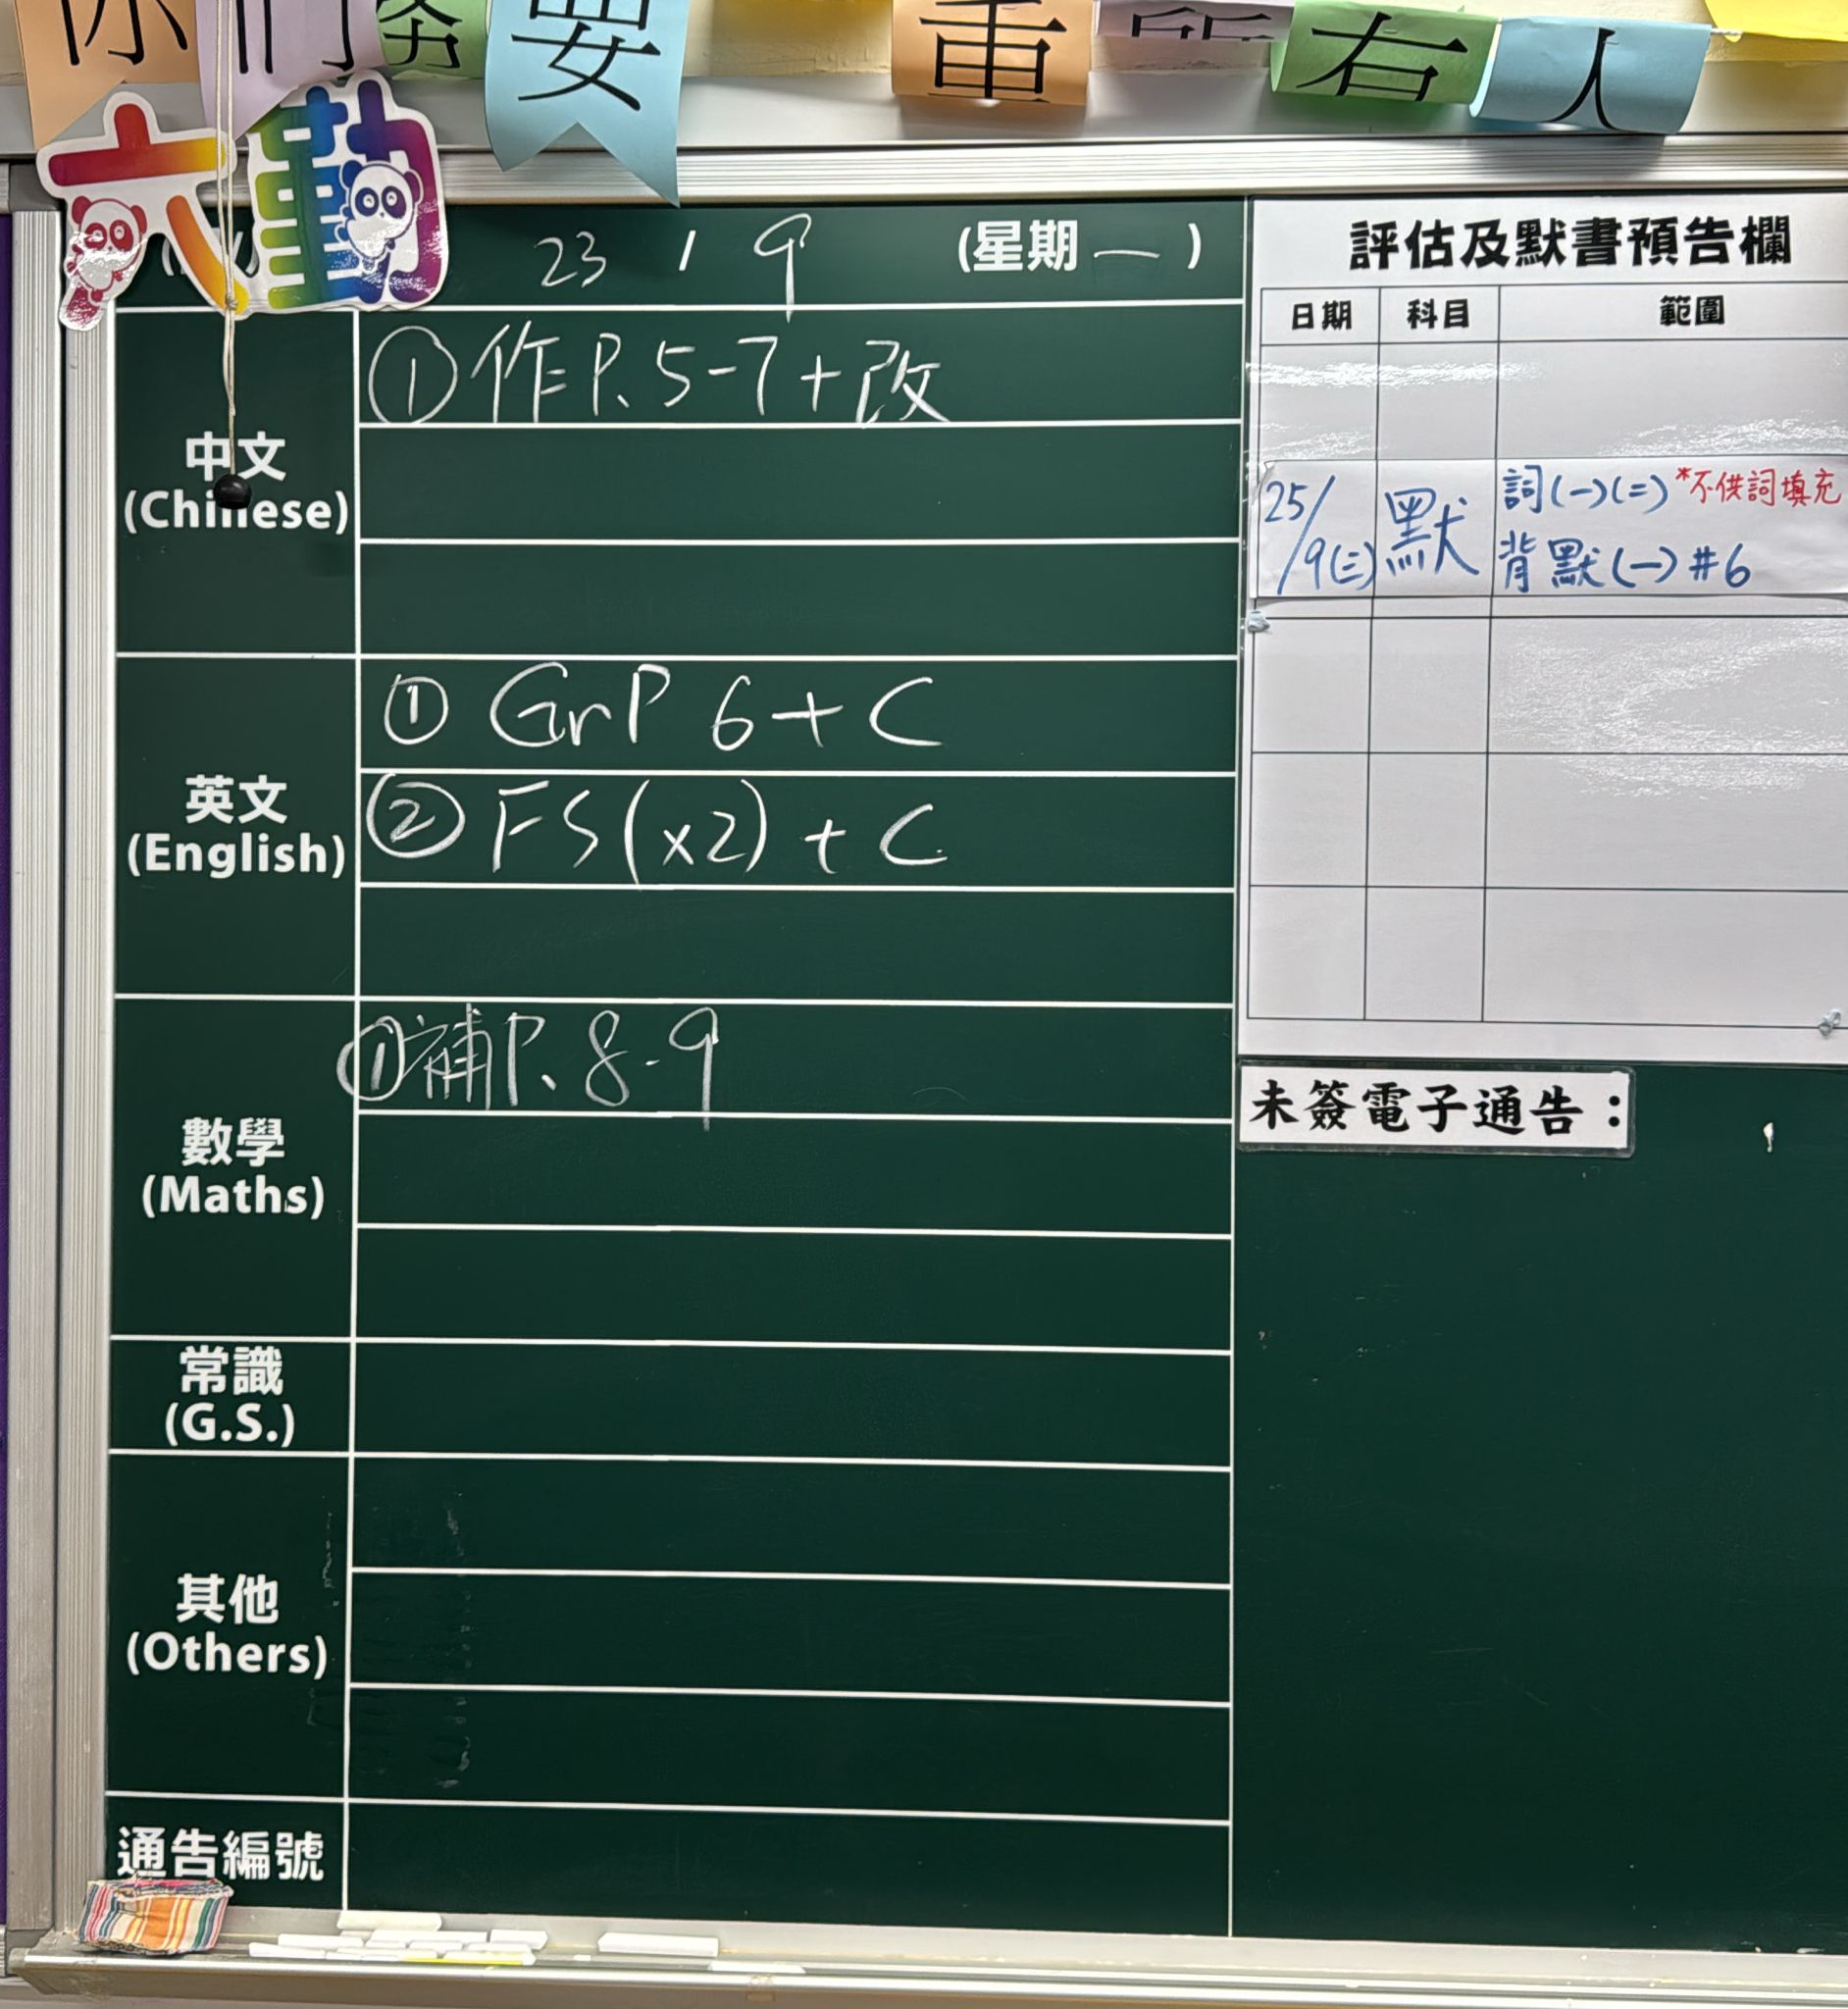 你們務要
重所有人
六勤
23 / 9 (星期一)
中文
(Chinese)
①作P.5-7+改
英文
(English)
① GrP 6+C
② FS(x2)+C
數學
(Maths)
①補P.8-9
常識
(G.S.)
其他
(Others)
通告編號
評估及默書預告欄
日期 科目 範圍
25/9(三) 默 詞(一)(二) *不供詞填充
背默(一)#6
未簽電子通告：